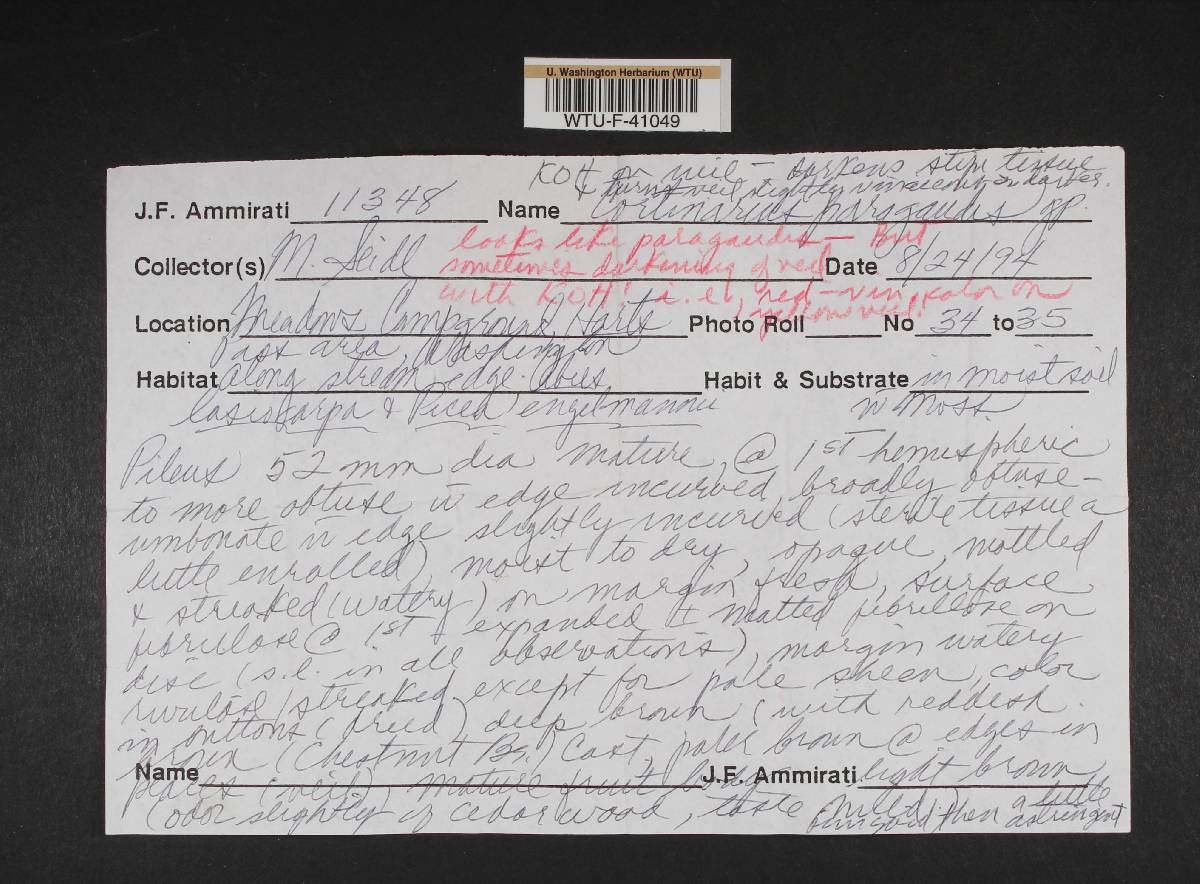 U. Washington Herbarium (WTU)
WTU-F-41049
KOH on veil – darkens stipe tissue
& turns veil slightly vinaceous or darker.
J.F. Ammirati 11348 Name Cortinarius paragaudis gp.
looks like paragaudis — But
Collector(s) M. Seidl sometimes darkening of veil Date 8/24/94
with KOH! i.e., red-vin. color on
yellow veil.
Location Meadows Campground, Harts Photo Roll No 34 to 35
Pass area, Washington
Habitat along stream edge. Abies Habit & Substrate in moist soil
lasiocarpa & Picea engelmannii w Moss
Pileus 52 mm dia mature, @ 1st hemispheric
to more obtuse w edge incurved, broadly obtuse-
umbonate w edge slightly incurved (sterile tissue a
little enrolled), moist to dry, opaque, mottled
& streaked (watery) on margin fresh, surface
fibrillose @ 1st, expanded ± matted fibrillose on
disc (s.l. in all observations), margin watery
rivulose/streaked except for pale sheen, color
in buttons (dried) deep brown (with reddish
brown (Chestnut Br.) cast, paler brown @ edges in
Name J.F. Ammirati light brown
places (veil), mature fruit body
(odor slightly of cedar wood, taste mild, then a little
astringent